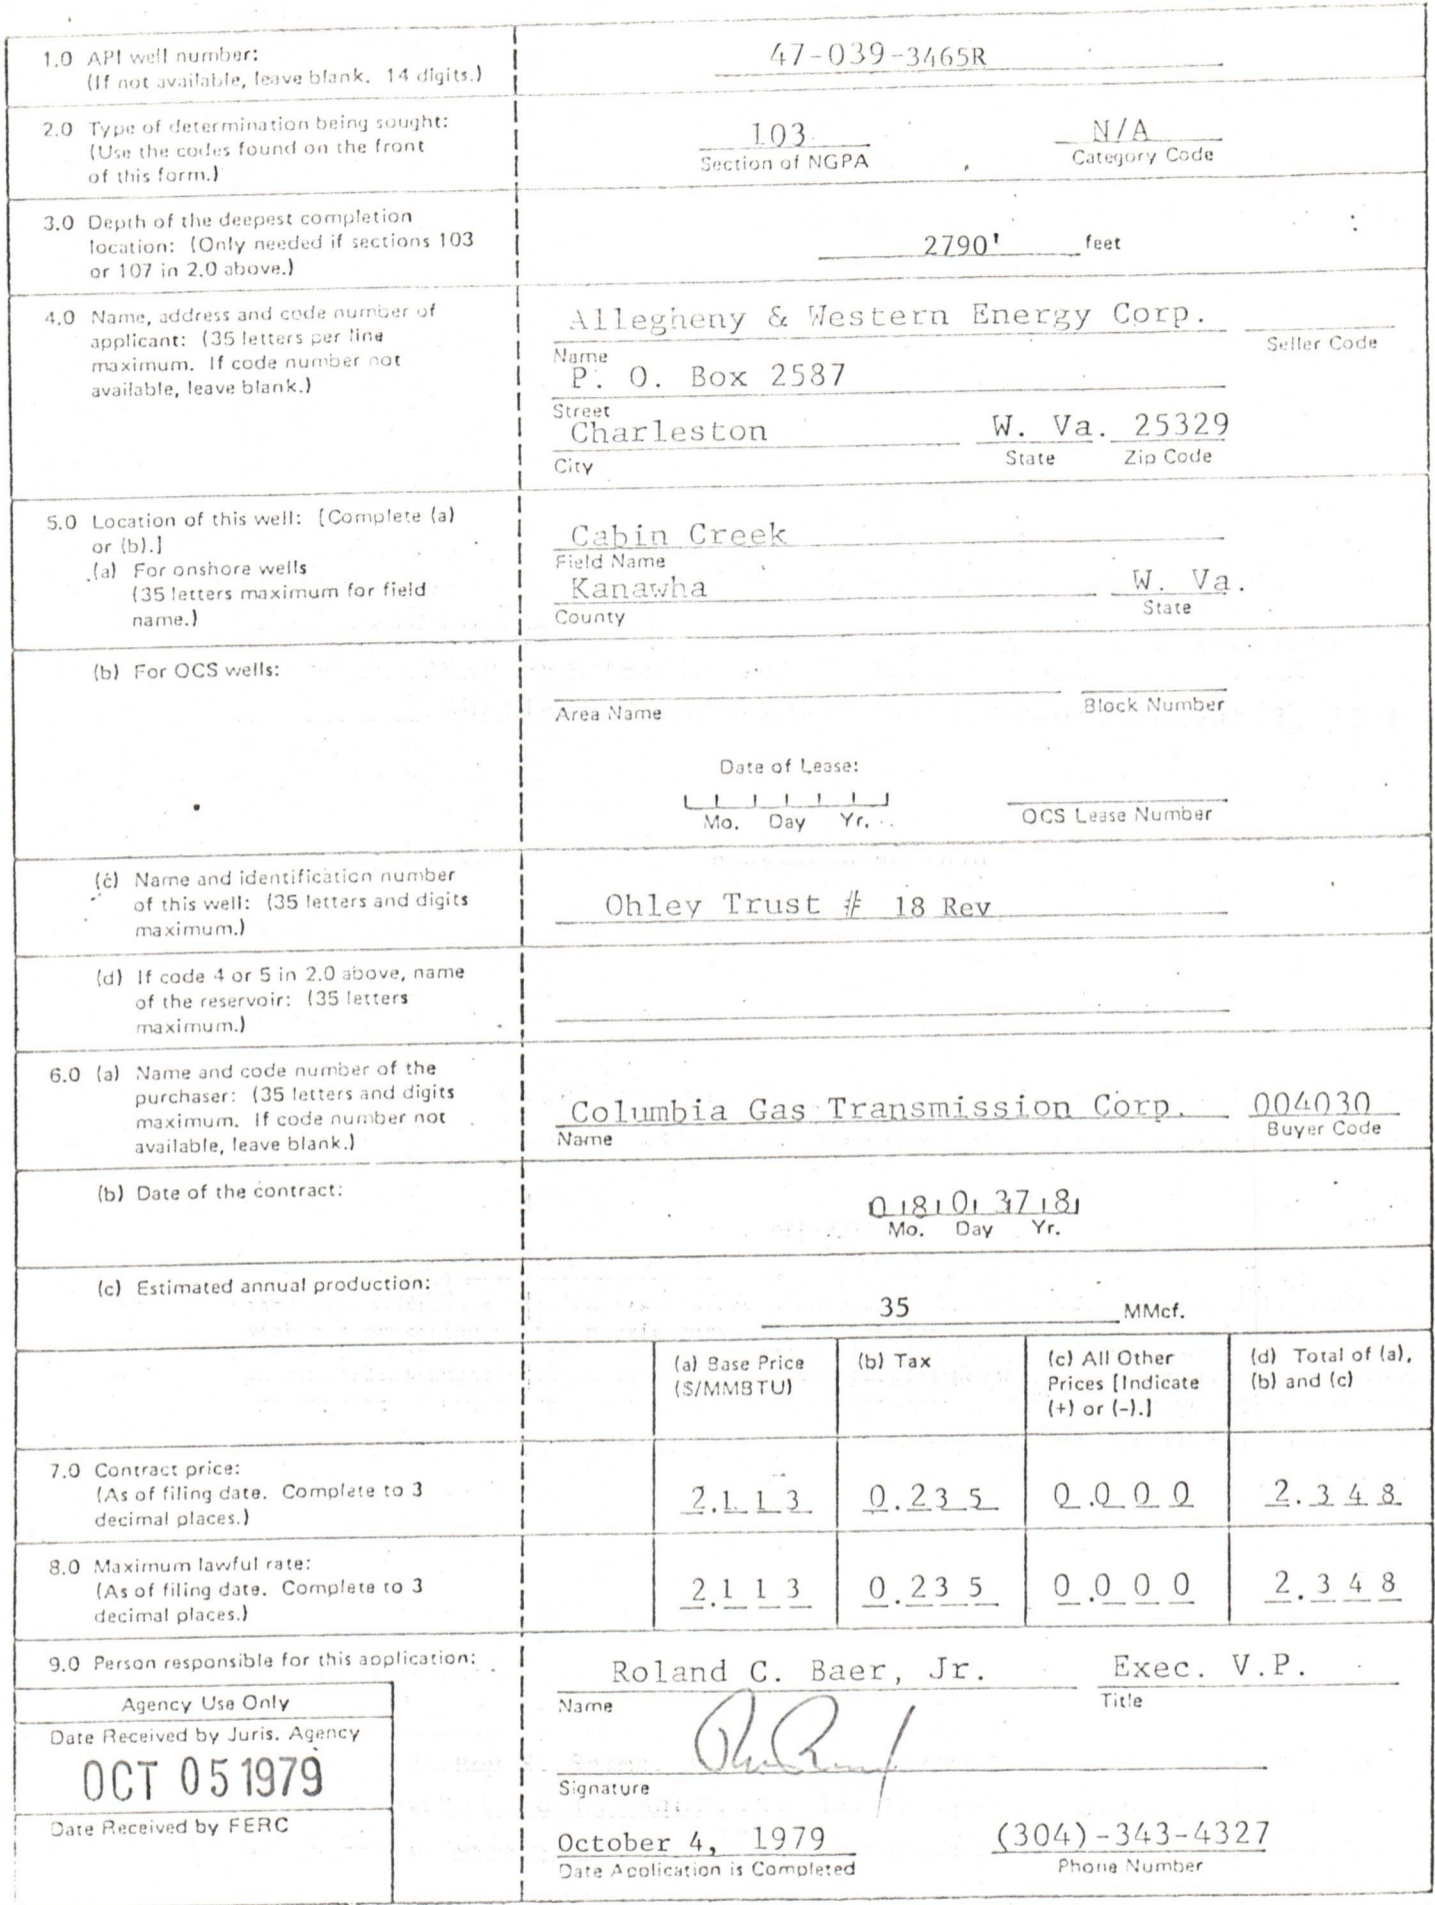 1.0 API well number:
(If not available, leave blank. 14 digits.)
47-039-3465R
2.0 Type of determination being sought:
(Use the codes found on the front
of this form.)
103
Section of NGPA
N/A
Category Code
3.0 Depth of the deepest completion
location: (Only needed if sections 103
or 107 in 2.0 above.)
2790' feet
4.0 Name, address and code number of
applicant: (35 letters per line
maximum. If code number not
available, leave blank.)
Allegheny & Western Energy Corp.
Name
Seller Code
P. O. Box 2587
Street
Charleston W. Va. 25329
City State Zip Code
5.0 Location of this well: [Complete (a)
or (b).]
(a) For onshore wells
(35 letters maximum for field
name.)
Cabin Creek
Field Name
Kanawha W. Va.
County State
(b) For OCS wells:
Area Name Block Number
Date of Lease:
Mo. Day Yr.
OCS Lease Number
(c) Name and identification number
of this well: (35 letters and digits
maximum.)
Ohley Trust # 18 Rev
(d) If code 4 or 5 in 2.0 above, name
of the reservoir: (35 letters
maximum.)
6.0 (a) Name and code number of the
purchaser: (35 letters and digits
maximum. If code number not
available, leave blank.)
Columbia Gas Transmission Corp. 004030
Name Buyer Code
(b) Date of the contract:
080378
Mo. Day Yr.
(c) Estimated annual production:
35 MMcf.
(a) Base Price
($/MMBTU)
(b) Tax
(c) All Other
Prices [Indicate
(+) or (-).]
(d) Total of (a),
(b) and (c)
7.0 Contract price:
(As of filing date. Complete to 3
decimal places.)
2.113 0.235 0.000 2.348
8.0 Maximum lawful rate:
(As of filing date. Complete to 3
decimal places.)
2.113 0.235 0.000 2.348
9.0 Person responsible for this application:
Roland C. Baer, Jr. Exec. V.P.
Name Title
Signature
October 4, 1979 (304)-343-4327
Date Application is Completed Phone Number
Agency Use Only
Date Received by Juris. Agency
OCT 05 1979
Date Received by FERC